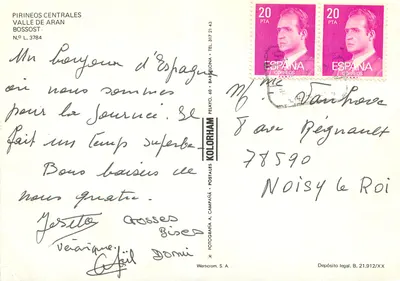 PIRINEOS CENTRALES
VALLE DE ARAN
BOSSOST
N.º L. 3784
Un bonjour d'Espagne
où nous sommes
pour la journée. Il
fait un temps superbe.
Bons baisers de
nous quatre.
Josette
Grosses
Bises
Véronique
Gaël
Domi
FOTOGRAFIA A. CAMPAÑA - POSTALES KOLORHAM
BARCELONA - TEL.
20 PTA
ESPAÑA
20 PTA
ESPAÑA
M. Mme Vanhove
8 ave Régnault
78590
NOISY le ROI
Mericrom. S. A.
Depósito legal. B, 21.912/XX